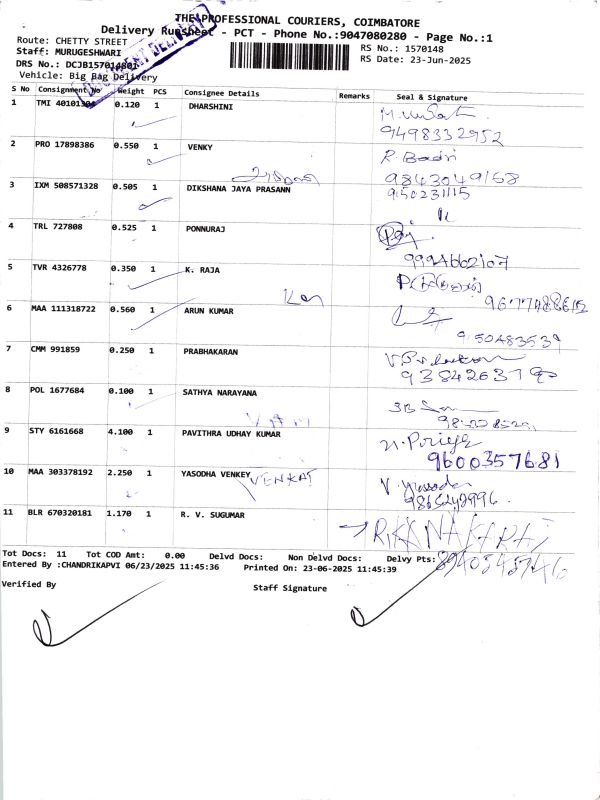 THE PROFESSIONAL COURIERS, COIMBATORE
Delivery Runsheet - PCT - Phone No.:9047080280 - Page No.:1
Route: CHETTY STREET
RS No.: 1570148
Staff: MURUGESHWARI
RS Date: 23-Jun-2025
DRS No.: DCJB157014801
Vehicle: Big Bag Delivery
S No Consignment No Weight PCS Consignee Details Remarks Seal & Signature
1 TMI 40101304 0.120 1 DHARSHINI
9498332952
2 PRO 17898386 0.550 1 VENKY R. Badri
9843049168
3 IXM 508571328 0.505 1 DIKSHANA JAYA PRASANN 9150231115
4 TRL 727808 0.525 1 PONNURAJ
9994602107
5 TVR 4326778 0.350 1 K. RAJA
9677488612
6 MAA 111318722 0.560 1 ARUN KUMAR
9150483539
7 CMM 991859 0.250 1 PRABHAKARAN
8 POL 1677684 0.100 1 SATHYA NARAYANA
9 STY 6161668 4.100 1 PAVITHRA UDHAY KUMAR
9600357681
10 MAA 303378192 2.250 1 YASODHA VENKEY VENKAT V. Yasoda
9865242996
11 BLR 670320181 1.170 1 R. V. SUGUMAR
Tot Docs: 11 Tot COD Amt: 0.00 Delvd Docs: Non Delvd Docs: Delvy Pts:
Entered By :CHANDRIKAPVI 06/23/2025 11:45:36 Printed On: 23-06-2025 11:45:39
Verified By
Staff Signature